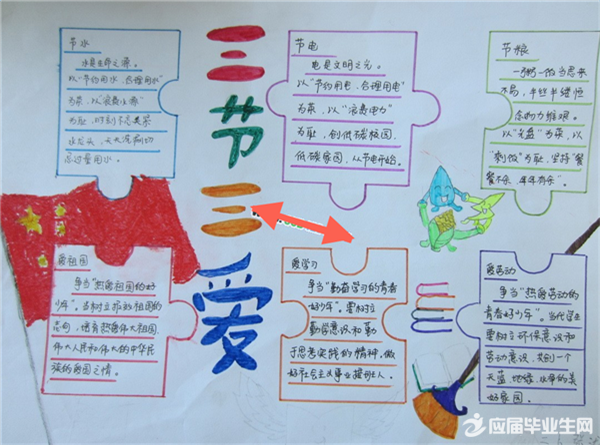 三节三爱
节水
水是生命之源。
以"节约用水、合理用水"
为荣，以"浪费水源"
为耻，时刻不忘关紧
水龙头，
总量用水。
节电
电是文明之光。
以"节约用电、合理用电"
为荣，以"浪费电力"
为耻，创低碳校园，
低碳家园，从节电开始。
节粮
一粥一饭当思来
不易，半丝半缕恒
念物力维艰。
以"光盘"为荣，以
"剩饭"为耻，坚持"餐
餐不余，年年有余"。
爱祖国
争当"热爱祖国的好
少年"。当树立报效祖国的
志向，培育热爱伟大祖国、
伟大人民和伟大的中华民
族的爱国之情。
爱学习
争当"勤奋学习的青春
好少年"。要树立
勤学意识和勤
于思考实践的精神，做
好社会主义事业接班人。
爱劳动
争当"热爱劳动的
青春好少年"。当代学生
要树立环保意识和
劳动意识，共创一个
天蓝、地绿、水净的美
好家园。
应届毕业生网